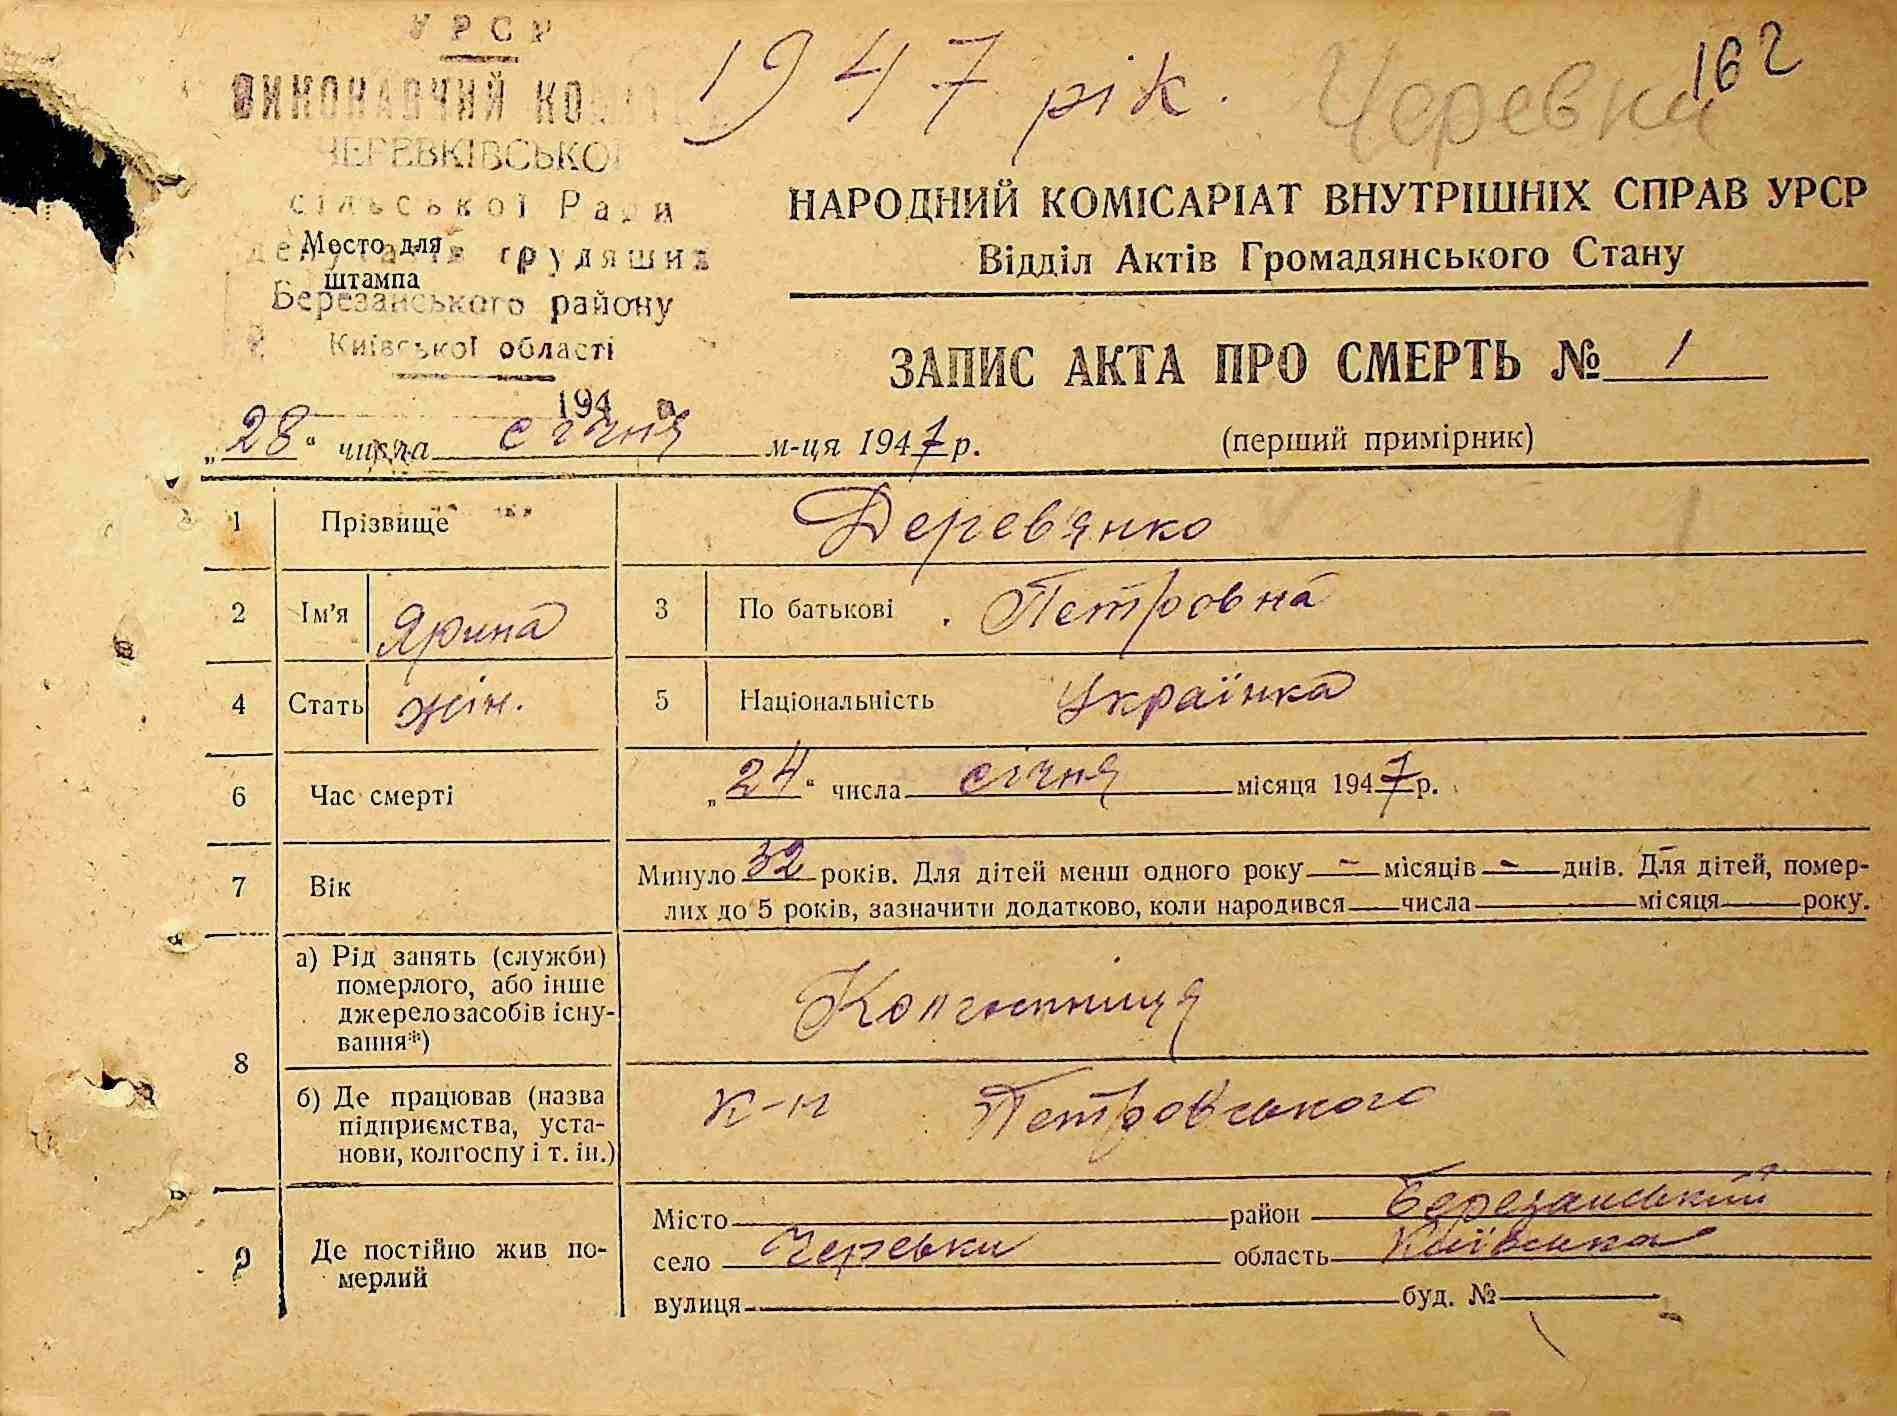 УРСР
ВИКОНАВЧИЙ КОМІТЕТ
ЧЕРЕВКІВСЬКОЇ
сільської Ради
депутатів трудящих
Березанського району
Київської області
Место для
штампа
194
1947 рік.
Черевка
162
НАРОДНИЙ КОМІСАРІАТ ВНУТРІШНІХ СПРАВ УРСР
Відділ Актів Громадянського Стану
ЗАПИС АКТА ПРО СМЕРТЬ № 1
„28“ числа січня м-ця 1947 р.
(перший примірник)
1 Прізвище Дерев'янко
2 Ім'я Ярина 3 По батькові Петровна
4 Стать жін. 5 Національність Українка
6 Час смерті „24“ числа січня місяця 1947 р.
7 Вік Минуло 32 років. Для дітей менш одного року - місяців - днів. Для дітей, помер-
лих до 5 років, зазначити додатково, коли народився числа місяця року.
8 а) Рід занять (служби)
померлого, або інше
джерело засобів існу-
вання*)
Колгоспниця
б) Де працював (назва
підприємства, уста-
нови, колгоспу і т. ін.)
к-п Петровського
9 Де постійно жив по-
мерлий
Місто район Березанський
село Черевки область Київська
вулиця буд. №